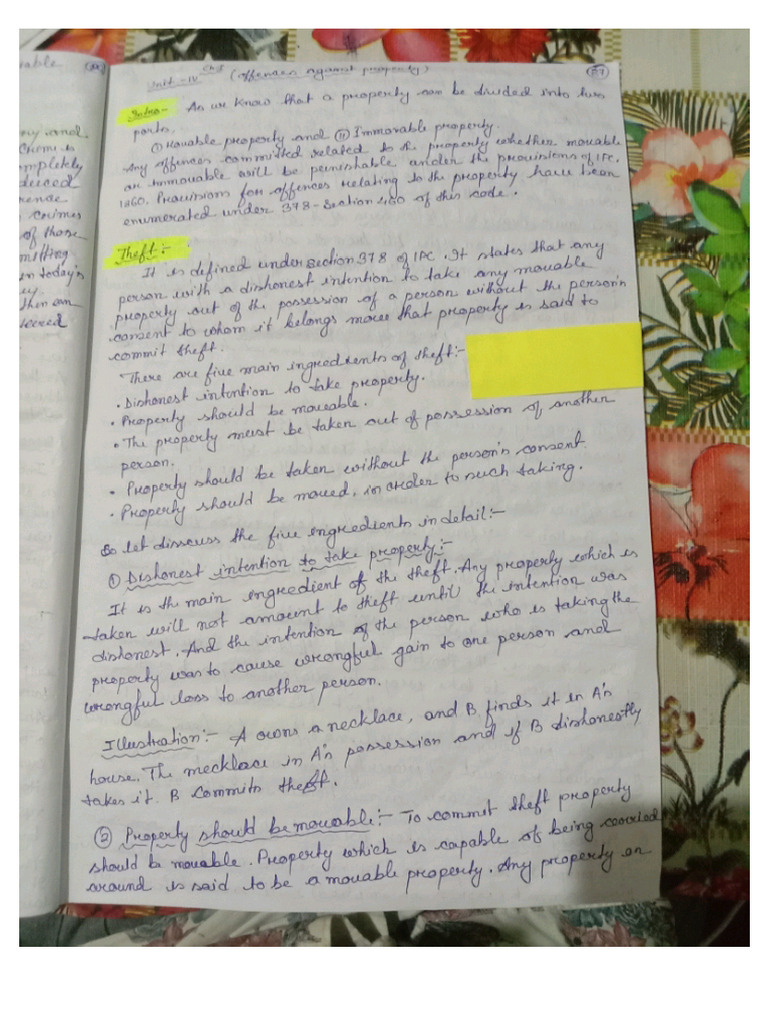 vable (56)
ny and
Crime is
mpletely
duced
rence
n crimes
of those
mitting
in today's
ey
then can
teered
Unit-IV Ch-5 (offences against property) (57)
Intro- As we know that a property can be divided into two
parts.
(i) Movable property and (ii) Immovable property.
Any offences committed related to the property whether movable
or immovable will be punishable under the provisions of IPC,
1860. Provisions for offences relating to the property have been
enumerated under 378-Section 460 of this code.
Theft:-
It is defined under section 378 of IPC. It states that any
person with a dishonest intention to take any movable
property out of the possession of a person without the person's
consent to whom it belongs moves that property is said to
commit theft.
There are five main ingredients of theft:-
• Dishonest intention to take property.
• Property should be moveable.
• The property must be taken out of possession of another
person.
• Property should be taken without the person's consent
• Property should be moved, in order to such taking.
So let disscuss the five ingredients in detail:-
① Dishonest intention to take property:-
It is the main ingredient of the theft. Any property which is
taken will not amount to theft until the intention was
dishonest. And the intention of the person who is taking the
property was to cause wrongful gain to one person and
wrongful loss to another person.
Illustration:- A owns a necklace, and B finds it in A's
house. The necklace in A's possession and if B dishonestly
takes it. B commits theft.
② Property should be movable:- To commit theft property
should be movable. Property which is capable of being carried
around is said to be a movable property. Any property on